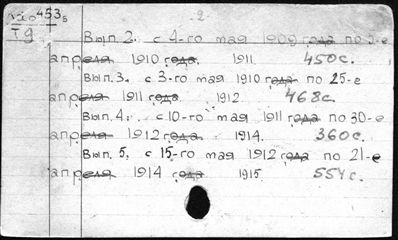 453₅
I 9
-2-
Вып. 2. с 4-го мая 1909 года по 3-е
апреля 1910 года. 1911. 450с.
Вып. 3. с 3-го мая 1910 года по 25-е
апреля 1911 года 1912. 468с.
Вып. 4. с 10-го мая 1911 года по 30-е
апреля 1912 года. 1914. 360с.
Вып. 5. с 15-го мая 1912 года по 21-е
апреля 1914 года 1915. 554с.